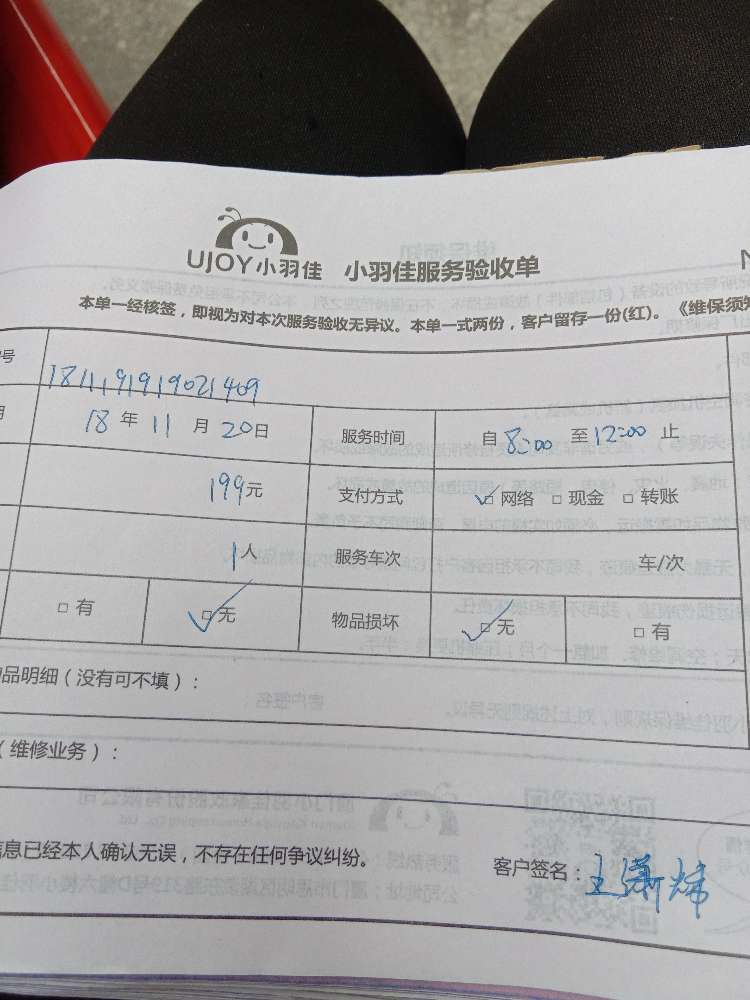 UJOY小羽佳 小羽佳服务验收单 N
本单一经核签，即视为对本次服务验收无异议。本单一式两份，客户留存一份(红)。《维保须知
号 1811191919021409
月 18年11月20日 服务时间 自8:00至12:00止
199元 支付方式 ☑网络 □现金 □转账
1人 服务车次 车/次
□有 ☑无 物品损坏 ☑无 □有
品明细（没有可不填）：
（维修业务）：
信息已经本人确认无误，不存在任何争议纠纷。 客户签名：王潇炜